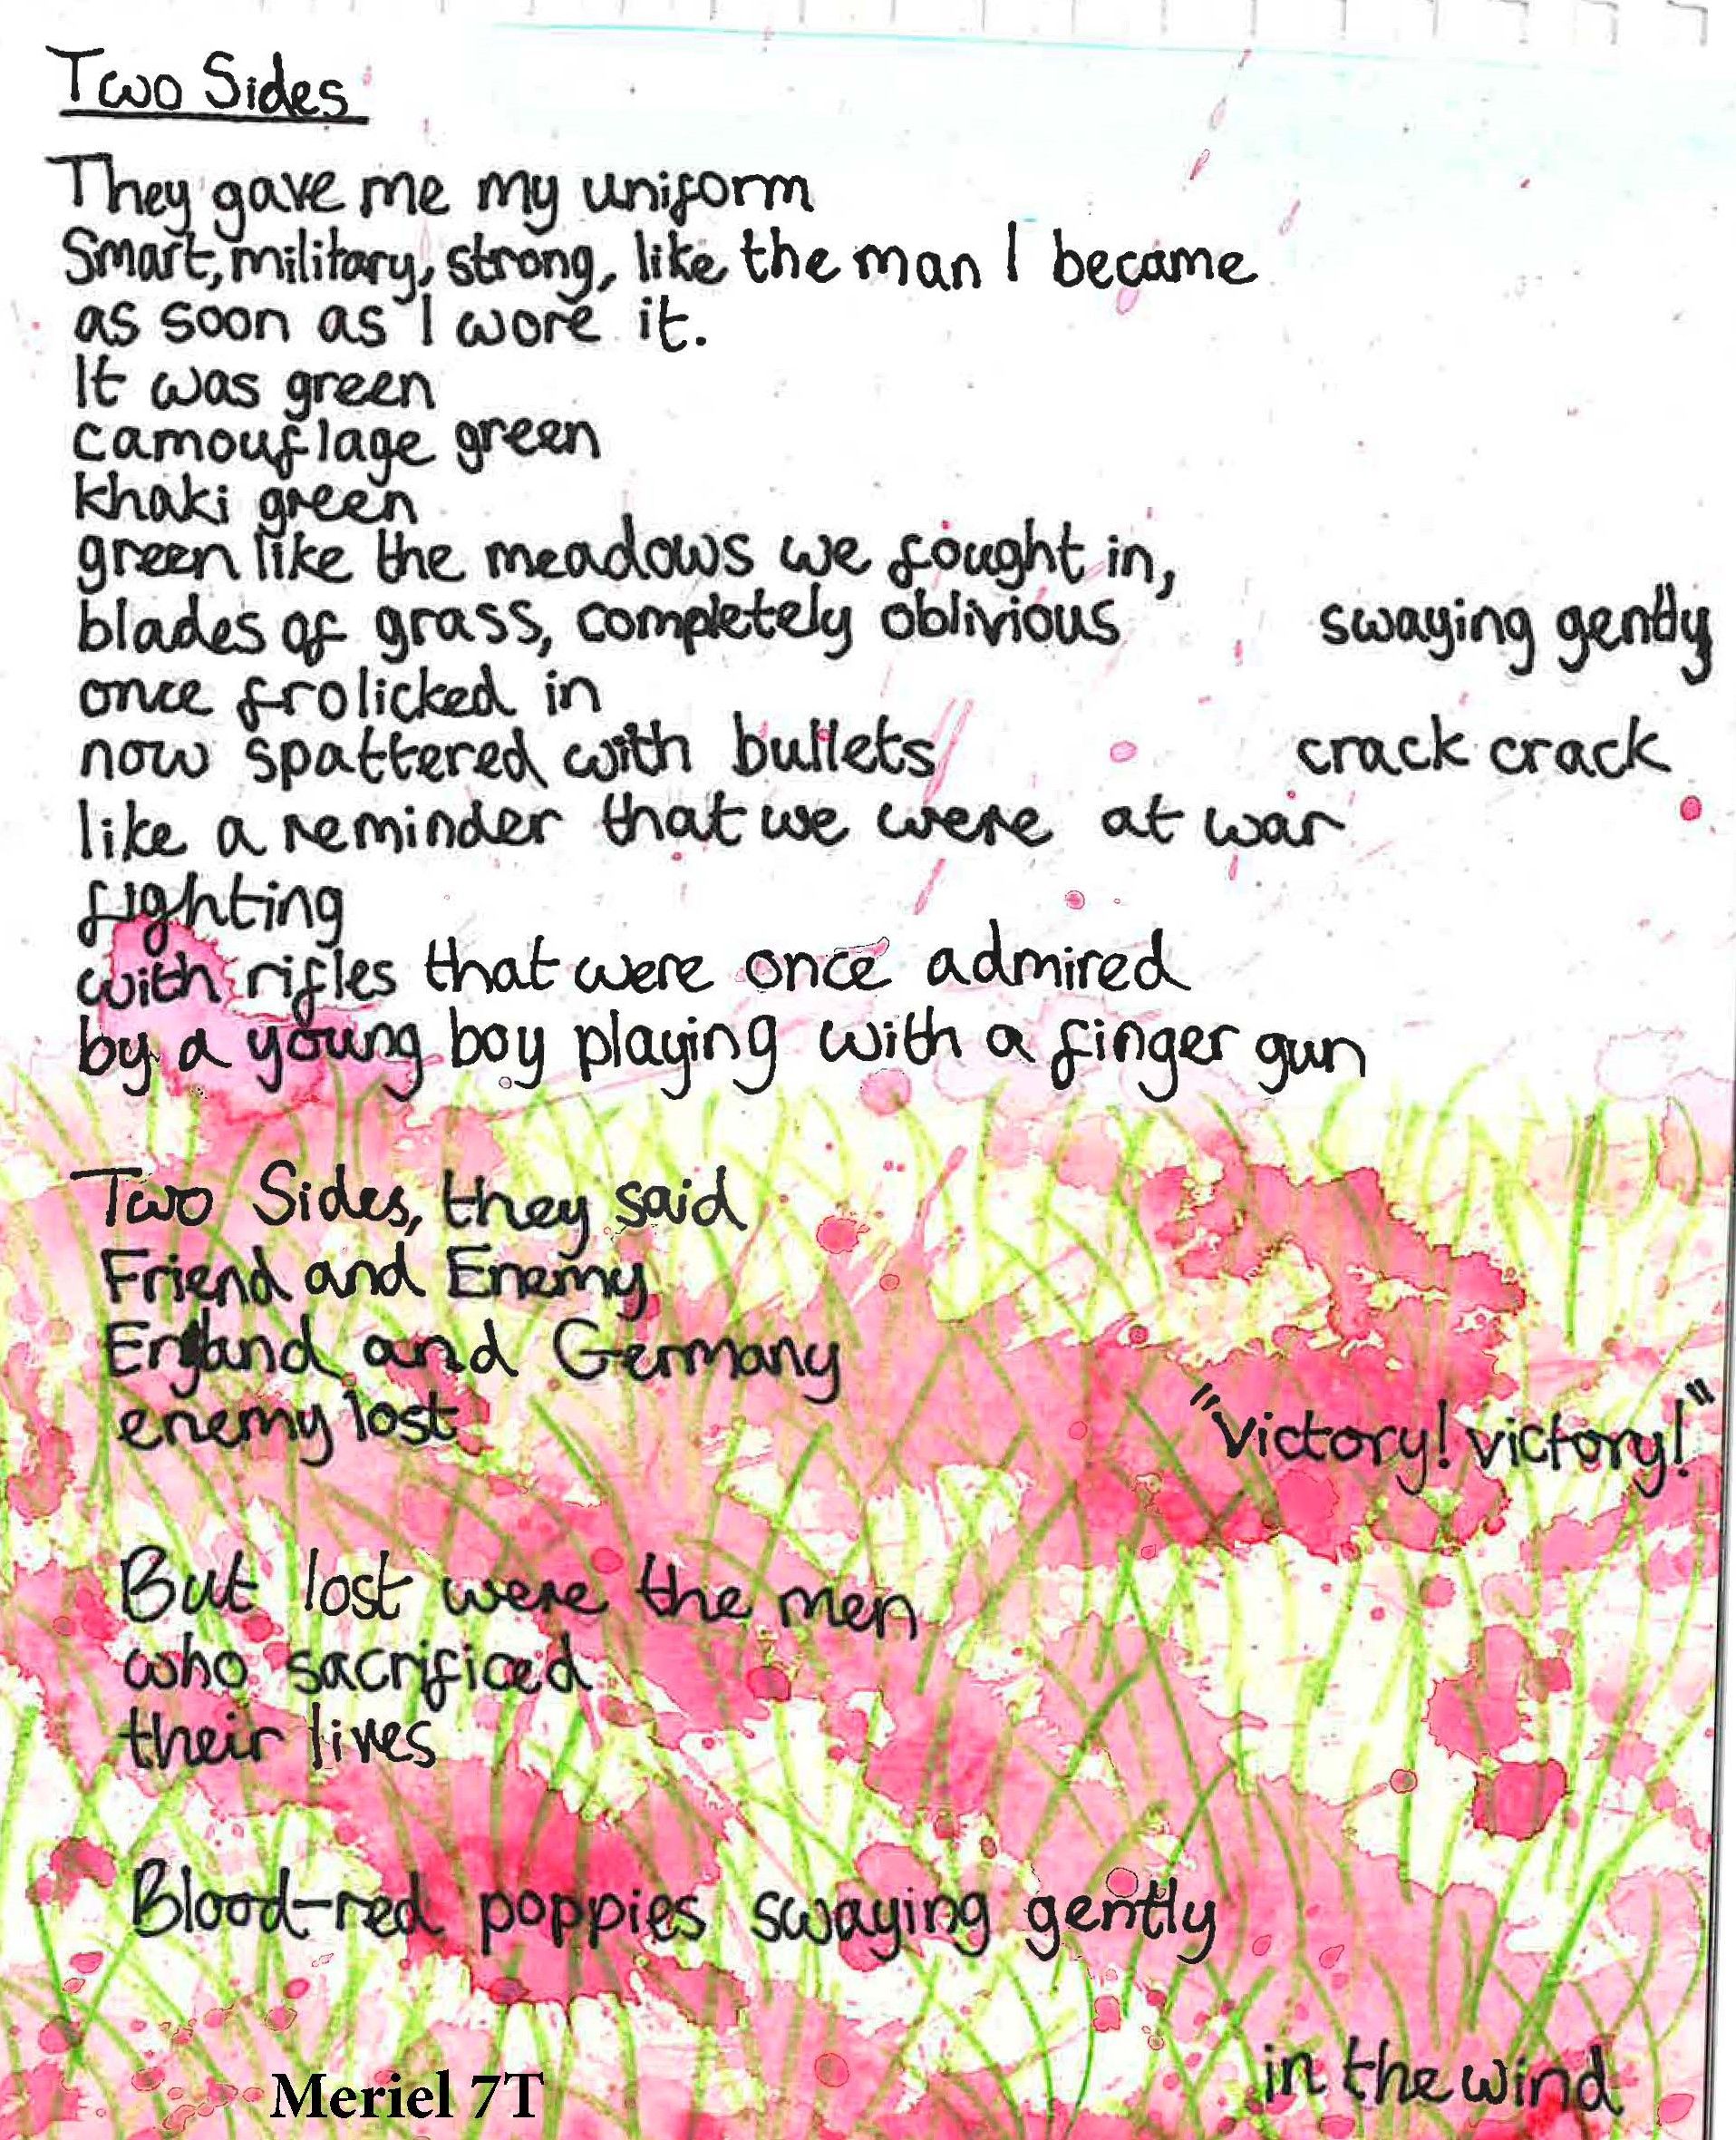 Two Sides
They gave me my uniform
Smart, military, strong, like the man I became
as soon as I wore it.
It was green
camouflage green
khaki green
green like the meadows we fought in,
blades of grass, completely oblivious swaying gently
once frolicked in
now spattered with bullets crack crack
like a reminder that we were at war
fighting
with rifles that were once admired
by a young boy playing with a finger gun
Two Sides, they said
Friend and Enemy
England and Germany
enemy lost "victory! victory!"
But lost were the men
who sacrificed
their lives
Blood-red poppies swaying gently
in the wind
Meriel 7T